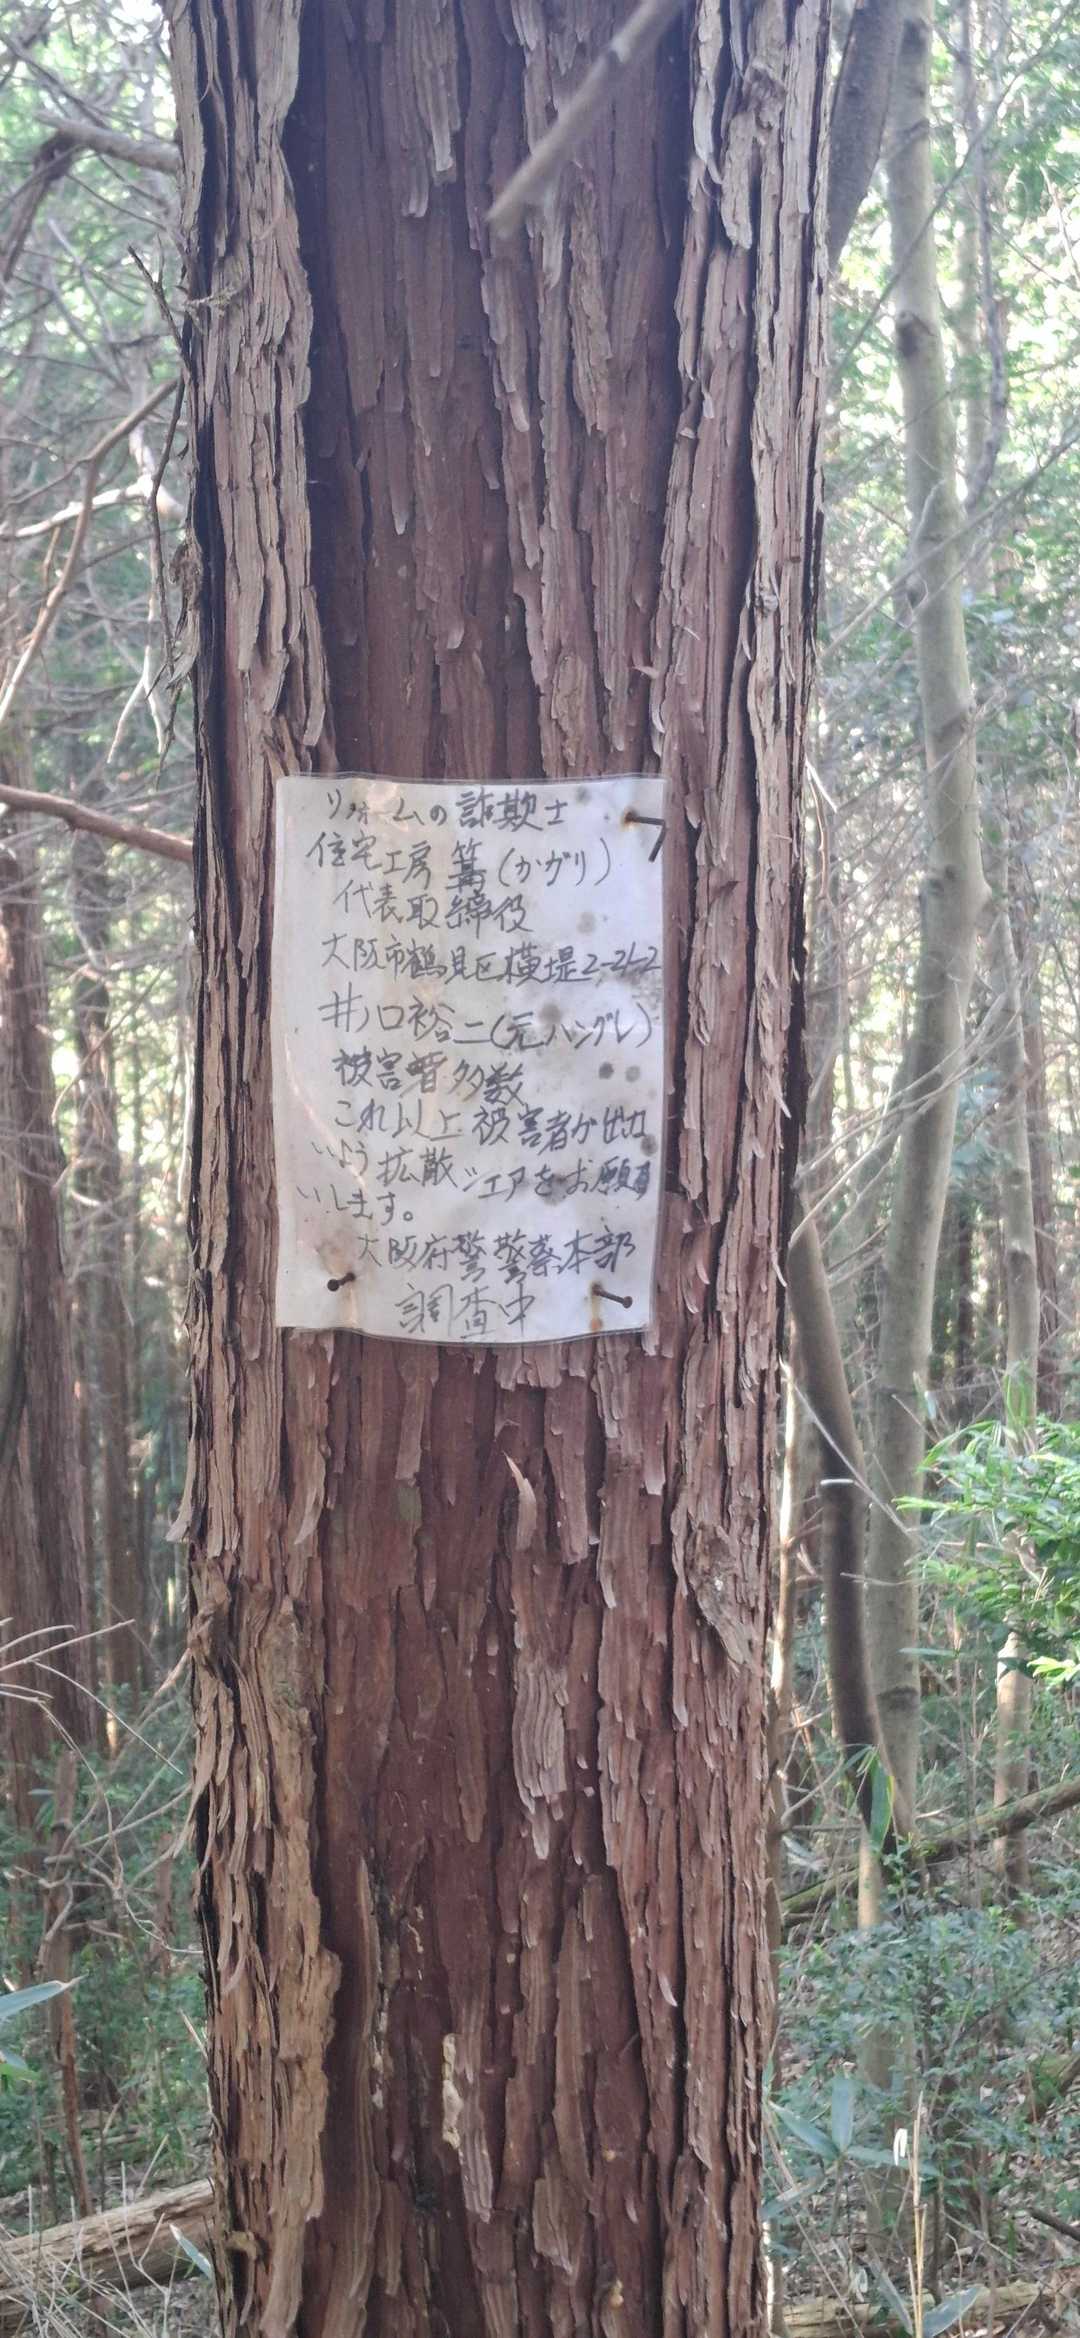 リォームの詐欺士
住宅工房 篝(かガリ)
代表取締役
大阪市鶴見区横堤2-21-2
井ノ口裕二(元ハングレ)
被害者多数
これ以上被害者が出な
いよう拡散シェアをお願
いします。
大阪府警警察本部
調査中